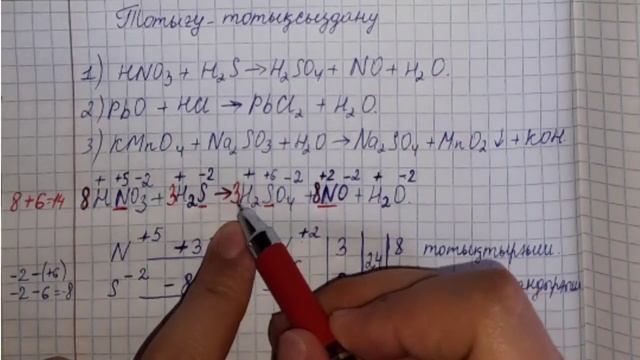 Тотығу-тотықсыздану
1) HNO₃ + H₂S → H₂SO₄ + NO + H₂O.
2) PbO + HCl → PbCl₂ + H₂O.
3) KMnO₄ + Na₂SO₃ + H₂O → Na₂SO₄ + MnO₂↓ + KOH
+ +5 -2 + -2 + +6 -2 +2 -2 + -2
8+6=14 8HNO₃ + 3H₂S → 3H₂SO₄ + 8NO + H₂O.
N⁺⁵ +3 +2 3 24 8 тотықтырғыш
-2-(+6)
-2-6=-8 S⁻² -8